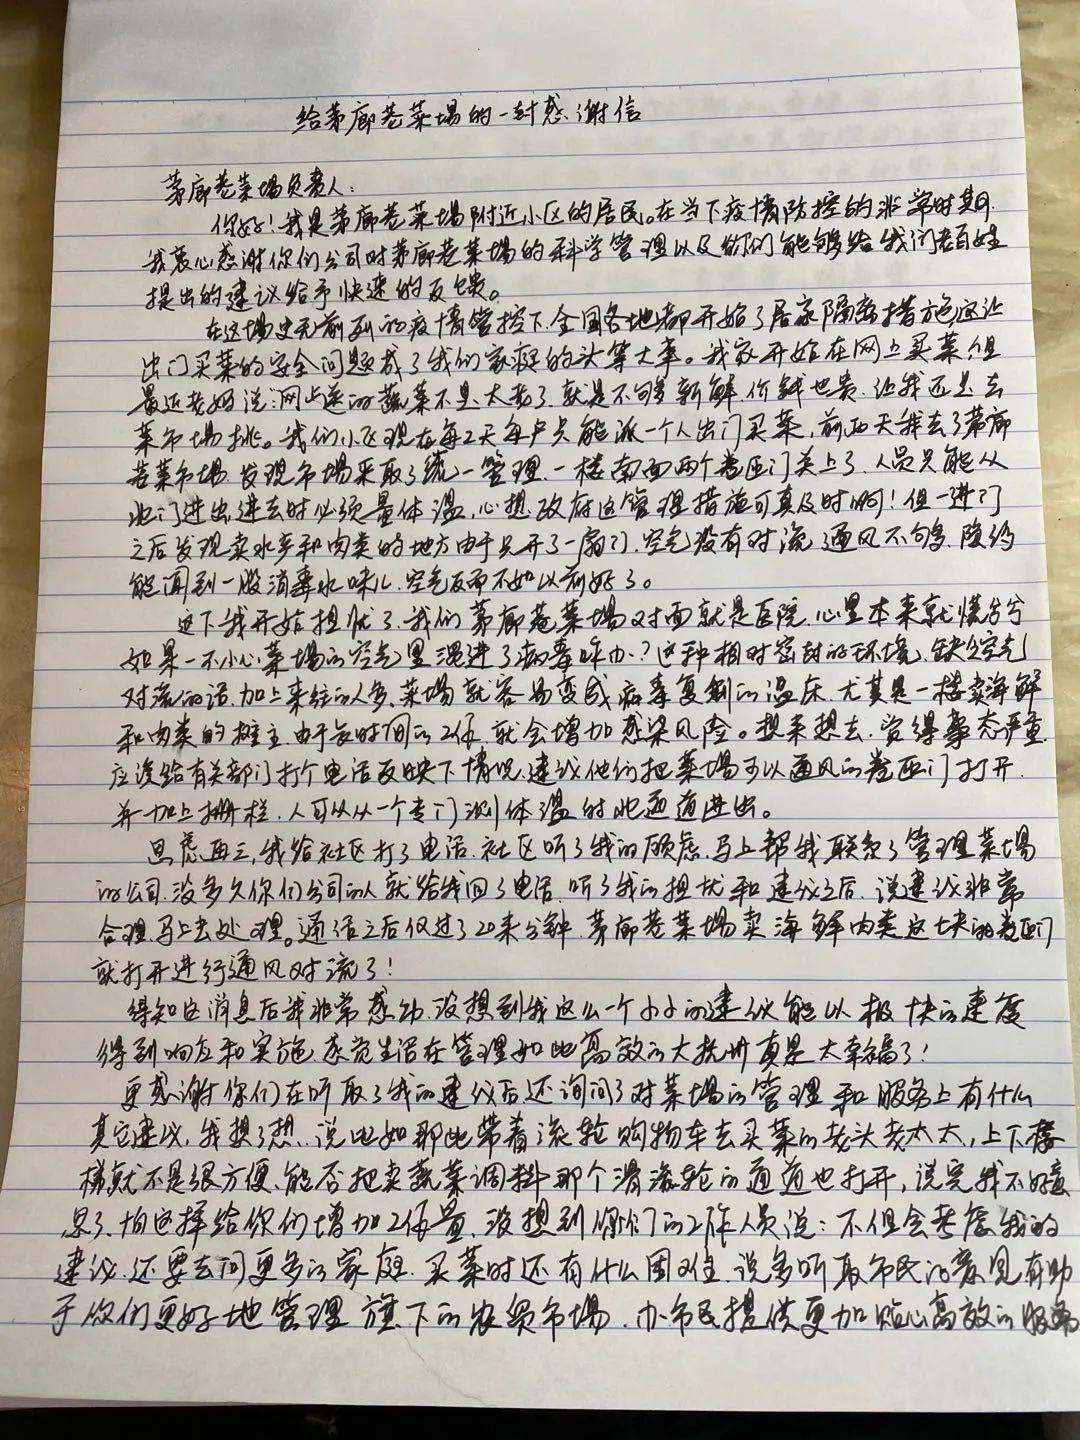 给茅廊巷菜场的一封感谢信
茅廊巷菜场负责人：
你好！我是茅廊巷菜场附近小区的居民。在当下疫情防控的非常时期
我衷心感谢你们公司对茅廊巷菜场的科学管理以及你们能够给我们老百姓
提出的建议给予快速的反馈。
在这场史无前列的疫情管控下，全国各地都开始了居家隔离措施，这让
出门买菜的安全问题成了我们家庭的头等大事。我家开始在网上买菜，但
最近老妈说：网上送的蔬菜不是太老了，就是不够新鲜，价钱也贵，让我还是去
菜市场挑。我们小区现在每2天每户只能派一个人出门买菜，前两天我去了茅廊
巷菜市场，发现市场采取了统一管理，一楼南面两个卷匝门关上了，人员只能从
北门进出，进去时必须量体温，心想，政府这管理措施可真及时啊！但一进门
之后发现卖水产和肉类的地方由于只开了一扇门，空气没有对流，通风不够，隐约
能闻到一股消毒水味儿，空气反而不如以前好了。
这下我开始担忧了，我们茅廊巷菜场对面就是医院，心里本来就慌兮兮
如果一不小心，菜场的空气里混进了病毒咋办？这种相对密封的环境，缺乏空气
对流的话，加上来往的人多，菜场就容易变成病毒复制的温床，尤其是一楼卖海鲜
和肉类的摊主，由于长时间的工作，就会增加感染风险。想来想去，觉得事态严重，
应该给有关部门打个电话反映下情况，建议他们把菜场可以通风的卷匝门打开，
并加上栅栏，人可以从一个专门测体温的北通道进出。
思虑再三，我给社区打了电话，社区听了我的顾虑，马上帮我联系了管理菜场
的公司，没多久你们公司的人就给我回了电话，听了我的担忧和建议之后，说建议非常
合理，马上去处理。通话之后仅过了20来分钟，茅廊巷菜场卖海鲜肉类这块的卷匝门
就打开进行通风对流了！
得知这消息后我非常感动，没想到我这么一个小小的建议能以极快的速度
得到响应和实施，感觉生活在管理如此高效的大杭州真是太幸福了！
更感谢你们在听取了我的建议后还询问了对菜场的管理和服务上有什么
其它建议，我想了想，说比如那些带着滚轮购物车去买菜的老头老太太，上下楼
梯就不是很方便，能否把卖蔬菜调料那个滑滚轮的通道也打开，说完我不好意
思了，怕这样给你们增加工作量，没想到你们的工作人员说：不但会考虑我的
建议，还要去问更多的家庭，买菜时还有什么困难，说多听取市民的意见有助
于你们更好地管理旗下的农贸市场，为市民提供更加贴心高效的服务